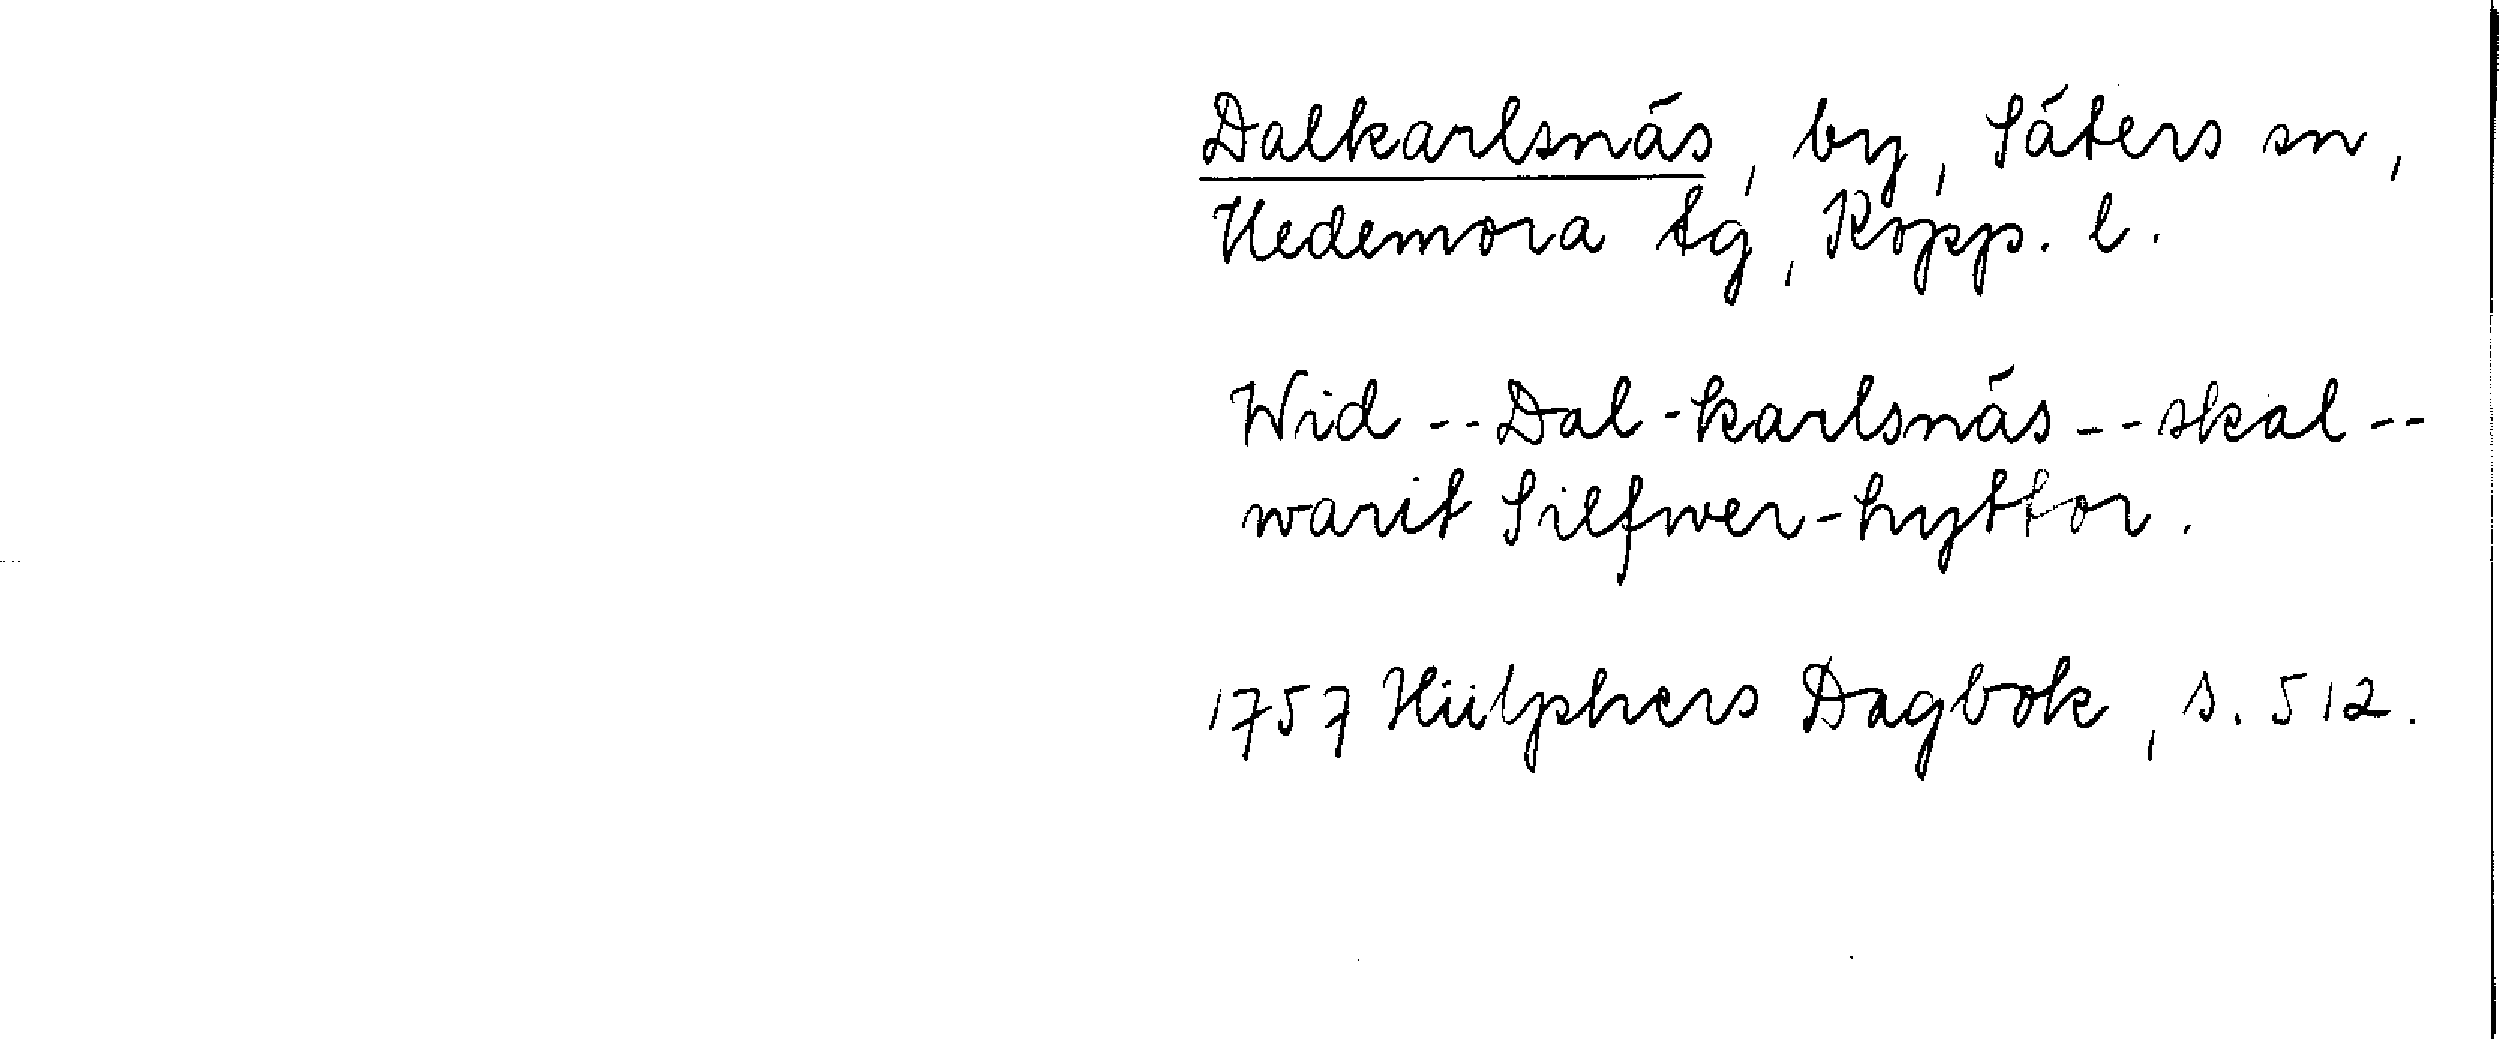 Dalkarlsnäs, by, Säters sn,
Hedemora tg, Kopp. l.
Wid -- Dal-karlsnäs -- skal --
warit Silfwer-hyttor.
1757 Hülphers Dagbok, s. 512.